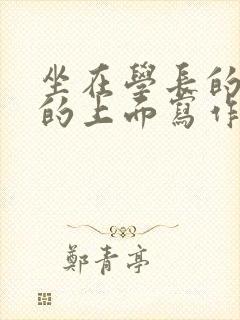 坐在學長的
的上面寫作
鄭青亭